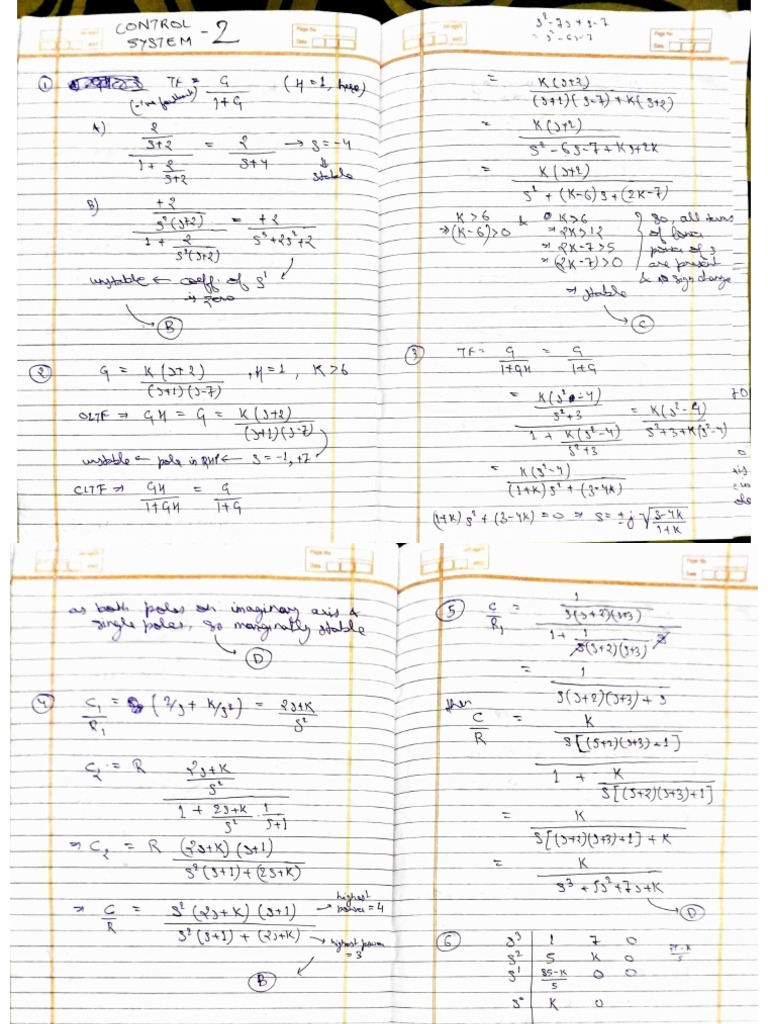 CONTROL SYSTEM - 2
Page No.
Date
① TF = G / 1+G (H=1, here)
(-ve feedback)
A) (2/(s+2)) / (1 + 2/(s+2)) = 2/(s+4) → s = -4
⇓
stable
B) (+2/(s²(s+2))) / (1 + 2/(s²(s+2))) = +2/(s³+2s²+2)
unstable ← coeff. of s¹
is zero
→ (B)
② G = K(s+2)/((s+1)(s-7)) , H=1, K>6
OLTF ⇒ GH = G = K(s+2)/((s+1)(s-7))
unstable ← pole in RHP ← s = -1, +7
CLTF ⇒ GH/(1+GH) = G/(1+G)
Page No.
Date
s²-7s+s-7
= s²-6s-7
= K(s+2)/((s+1)(s-7)+K(s+2))
= K(s+2)/(s²-6s-7+Ks+2K)
= K(s+2)/(s²+(K-6)s+(2K-7))
K>6 & K>6 } So, all terms
⇒(K-6)>0 ⇒ 2K>12 of lower
⇒ 2K-7>5 power of s
⇒ (2K-7)>0 are present
& no sign change
⇒ stable
→ (C)
③ TF = G/(1+GH) = G/(1+G)
= (K(s²-4)/(s²+3)) / (1 + K(s²-4)/(s²+3)) = K(s²-4)/(s²+3+K(s²-4))
= K(s²-4)/((1+K)s²+(3-4K))
(1+K)s²+(3-4K)=0 ⇒ s=±j√((3-4K)/(1+K))
Page No.
Date
as both poles on imaginary axis &
single poles, so marginally stable
→ (D)
④ C₁/R₁ = (2/s + K/s²) = (2s+K)/s²
C₂ = R ((2s+K)/s²) / (1 + (2s+K)/s² · 1/(s+1))
⇒ C₂ = R (2s+K)(s+1)/(s²(s+1)+(2s+K))
⇒ C/R = s²(2s+K)(s+1)/(s²(s+1)+(2s+K))
→ highest power = 4
→ highest power = 3
(B)
Page No.
Date
⑤ C/R₁ = (1/(s(s+2)(s+3))) / (1 + 1/(s(s+2)(s+3)) s)
= 1/(s(s+2)(s+3)+s)
then
C/R = (K/(s[(s+2)(s+3)+1])) / (1 + K/(s[(s+2)(s+3)+1]))
= K/(s[(s+2)(s+3)+1]+K)
= K/(s³+5s²+7s+K)
→ (D)
⑥ s³ | 1 7 0
s² | 5 K 0
s¹ | (35-K)/5 0 0
s⁰ | K 0